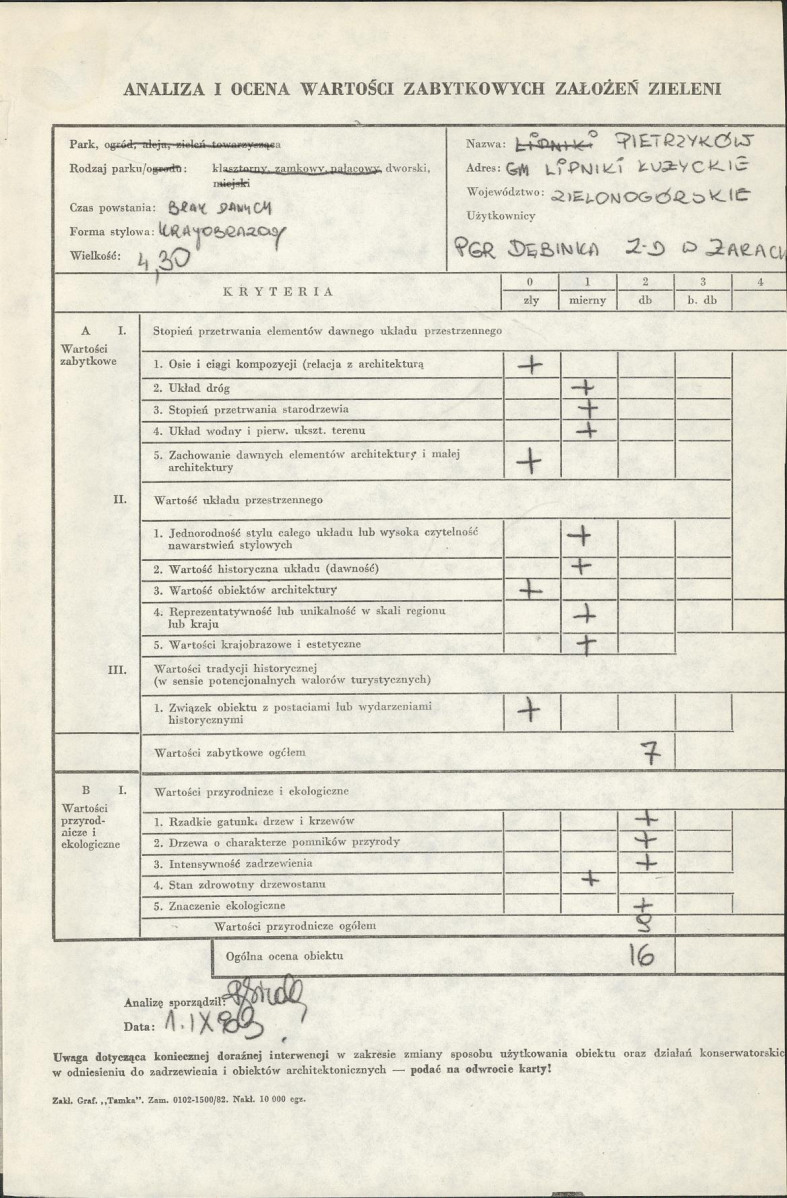 ANALIZA I OCENA WARTOŚCI ZABYTKOWYCH ZAŁOŻEŃ ZIELENI
Park, ogród, aleja, zieleń towarzysząca
Rodzaj parku/ogrodu: klasztorny, zamkowy, pałacowy, dworski,
miejski
Czas powstania: BRAK DANYCH
Forma stylowa: KRAJOBRAZOWY
Wielkość: 4,30
Nazwa: LIPNIKI PIETRZYKÓW
Adres: GM LIPNIKI ŁUŻYCKIE
Województwo: ZIELONOGÓRSKIE
Użytkownicy
PGR DĘBINKA Z-D W ŻARACH
KRYTERIA
0 1 2 3 4
zły mierny db b. db
A I. Stopień przetrwania elementów dawnego układu przestrzennego
Wartości
zabytkowe
1. Osie i ciągi kompozycji (relacja z architekturą +
2. Układ dróg +
3. Stopień przetrwania starodrzewia +
4. Układ wodny i pierw. ukszt. terenu +
5. Zachowanie dawnych elementów architektury i małej
architektury +
II. Wartość układu przestrzennego
1. Jednorodność stylu całego układu lub wysoka czytelność
nawarstwień stylowych +
2. Wartość historyczna układu (dawność) +
3. Wartość obiektów architektury +
4. Reprezentatywność lub unikalność w skali regionu
lub kraju +
5. Wartości krajobrazowe i estetyczne +
III. Wartości tradycji historycznej
(w sensie potencjonalnych walorów turystycznych)
1. Związek obiektu z postaciami lub wydarzeniami
historycznymi +
Wartości zabytkowe ogółem 7
B I. Wartości przyrodnicze i ekologiczne
Wartości
przyrod-
nicze i
ekologiczne
1. Rzadkie gatunki drzew i krzewów +
2. Drzewa o charakterze pomników przyrody +
3. Intensywność zadrzewienia +
4. Stan zdrowotny drzewostanu +
5. Znaczenie ekologiczne +
Wartości przyrodnicze ogółem 9
Ogólna ocena obiektu 16
Analizę sporządził:
Data: 1.IX
Uwaga dotycząca koniecznej doraźnej interwencji w zakresie zmiany sposobu użytkowania obiektu oraz działań konserwatorskic
w odniesieniu do zadrzewienia i obiektów architektonicznych — podać na odwrocie karty!
Zakł. Graf. „Tamka". Zam. 0102-1500/82. Nakł. 10 000 egz.